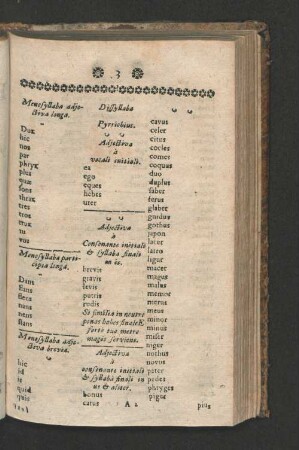 3
Monosyllaba adje-
ctiva longa.
Dux
hic
nos
par
phryx
plus
quæ
sons
thrax
tres
tros
trux
tu
vos
Monosyllaba parti-
cipia longa.
Dans
Fans
flens
nens
stans
Monosyllaba adje-
ctiva brevia.
hic
id
is
quid
quis
Dissyllaba
Pyrrichius.
Adjectiva
à
vocali initiali.
ex
ego
eques
hebes
uter
Adjectiva
à
Consonante initiali
& syllaba finali
in is.
brevis
gravis
levis
putris
rudis
Et similia in neutro
genere
forte tuo metro
magis servient.
Adjectiva
à
consonante initiali
& syllaba finali in
us & aliter.
bonus
catus
cavus
celer
citus
cocles
comes
coquus
duo
duplus
faber
ferus
glaber
gnidus
gothus
japon
latur
latro
ligur
macer
magus
malus
memor
merus
minor
minus
miser
niger
nothus
novus
peter
pedes
phryges
piger
A 2
pius